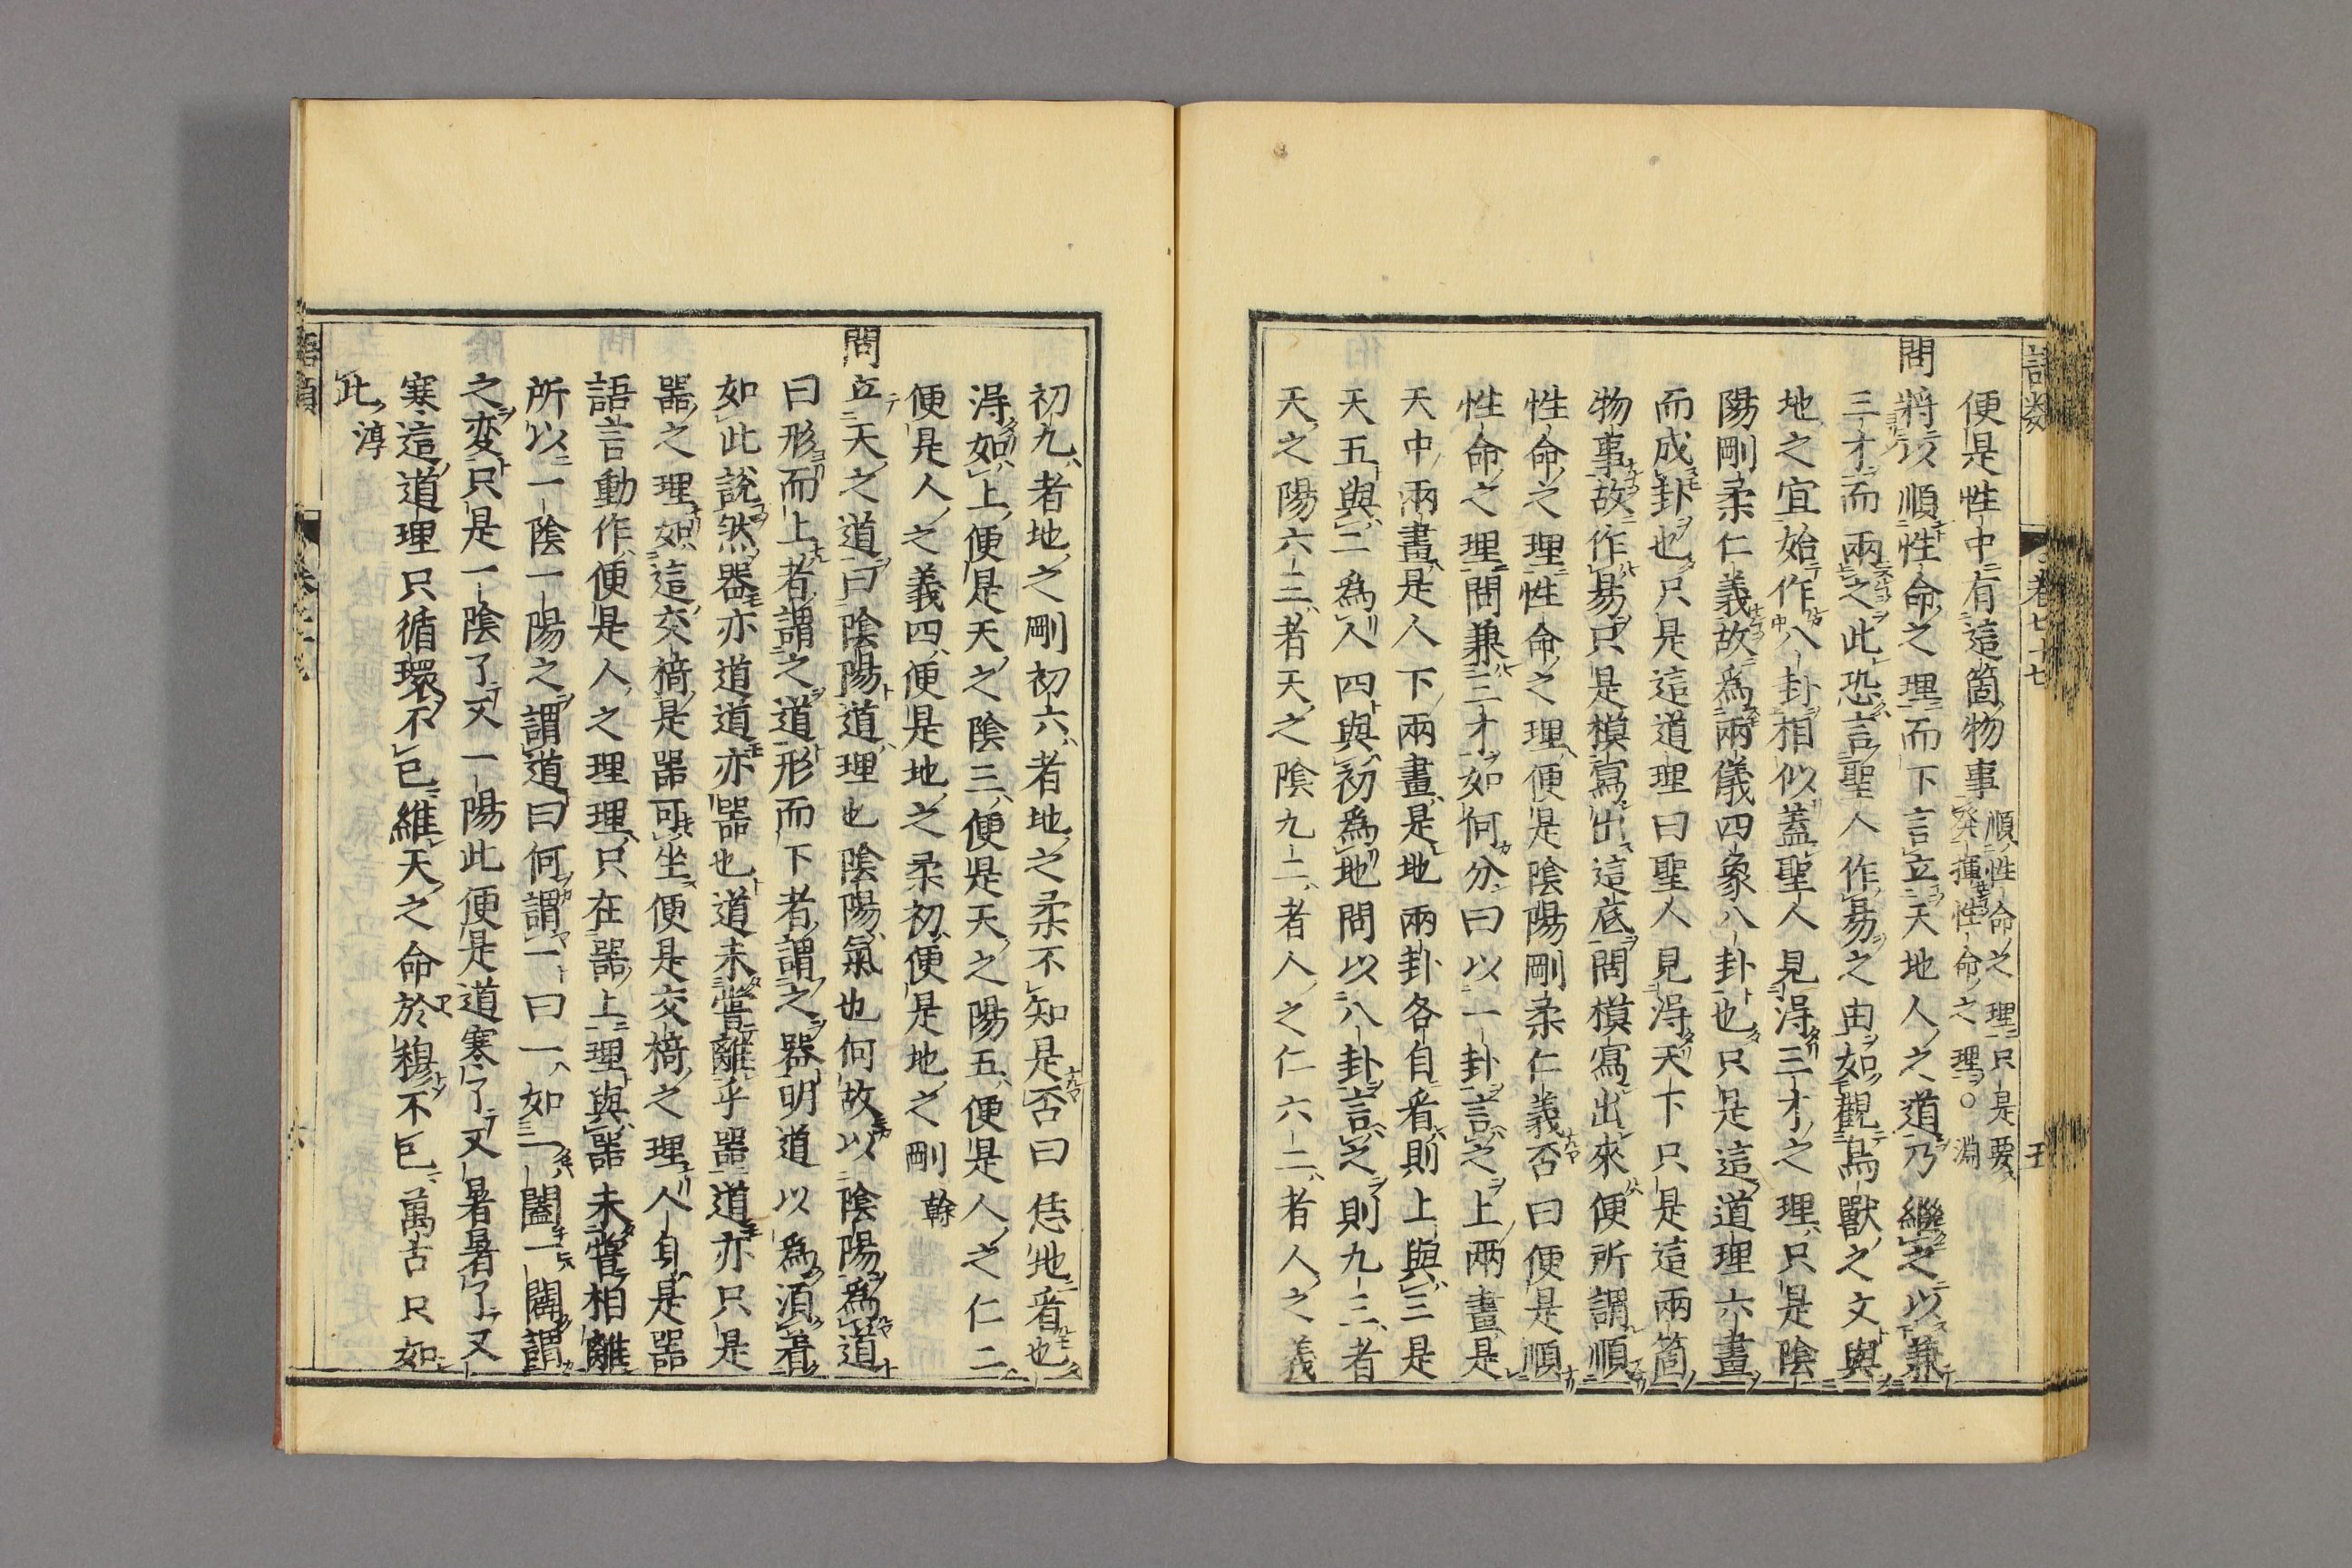 便是性中有這箇物事順性命之理只是要
發揮性命之理○淵
問將以順性命之理而下言立天地人之道乃繼之以兼
三才而兩之此恐言聖人作易之由如觀鳥獸之文與
地之宜始作八卦相似蓋聖人見得三才之理只是陰
陽剛柔仁義故爲兩儀四象八卦也只是這道理六畫
而成卦也只是這道理曰聖人見得天下只是這兩箇
物事故作易只是模寫出這底問模寫出來便所謂順
性命之理性命之理便是陰陽剛柔仁義否曰便是順
性命之理問兼三才如何分曰以一卦言之上兩畫是
天中兩畫是人下兩畫是地兩卦各自看則上與三是
天五與二爲人四與初爲地問以八卦言之則九三者
天之陽六三者天之陰九二者人之仁六二者人之義
初九者地之剛初六者地之柔不知是否曰恁地看也
得如上便是天之陰三便是天之陽五便是人之仁二
便是人之義四便是地之柔初便是地之剛榦
問立天之道曰陰陽道理也陰陽氣也何故以陰陽爲道
曰形而上者謂之道形而下者謂之器明道以爲須著
如此說然器亦道道亦器也道未嘗離乎器道亦只是
器之理如這交椅是器可坐便是交椅之理人身是器
語言動作便是人之理理只在器上理與器未嘗相離
所以一陰一陽之謂道曰何謂一曰一如一闔一闢謂
之変只是一陰了又一陽此便是道寒了又暑暑了又
寒這道理只循環不已維天之命於穆不已萬古只如
此淳